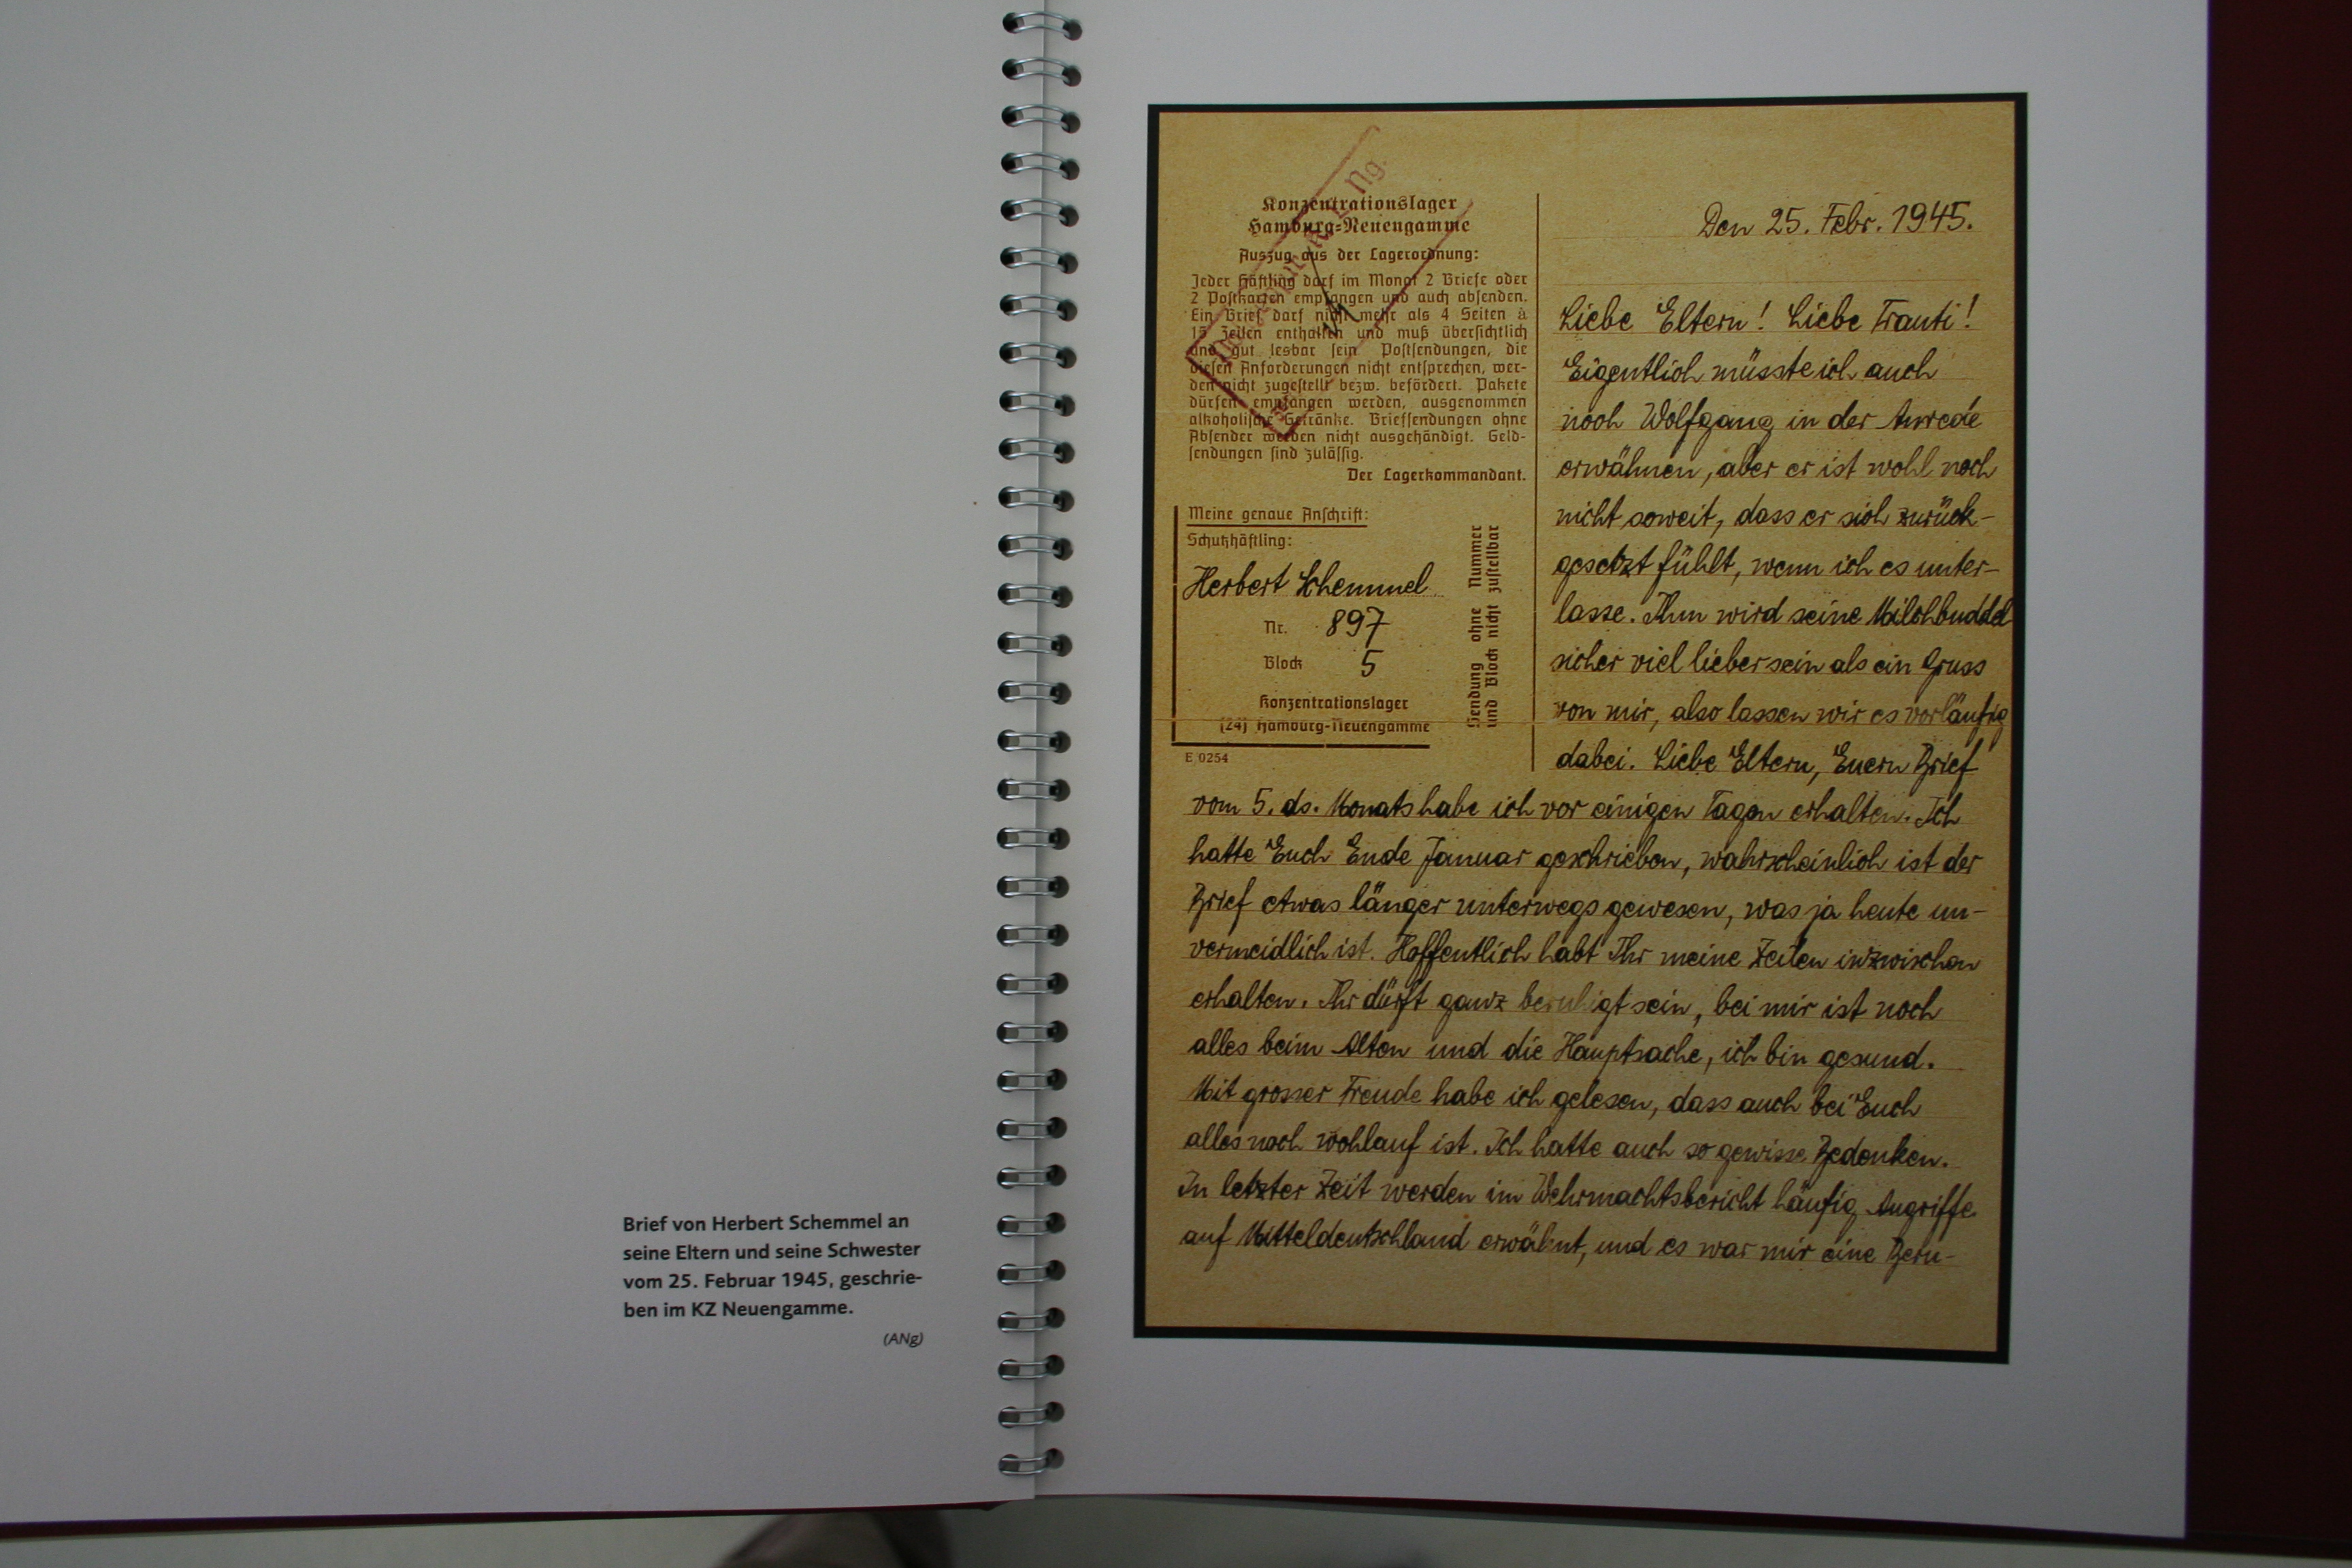 Brief von Herbert Schemmel an
seine Eltern und seine Schwester
vom 25. Februar 1945, geschrie-
ben im KZ Neuengamme.
(ANg)
Konzentrationslager
Hamburg-Neuengamme
Auszug aus der Lagerordnung:
Jeder Häftling darf im Monat 2 Briefe oder
2 Postkarten empfangen und auch absenden.
Ein Brief darf nicht mehr als 4 Seiten à
15 Zeilen enthalten und muß übersichtlich
und gut lesbar sein. Postsendungen, die
diesen Anforderungen nicht entsprechen, wer-
den nicht zugestellt bezw. befördert. Pakete
dürfen empfangen werden, ausgenommen
alkoholische Getränke. Briefsendungen ohne
Absender werden nicht ausgehändigt. Geld-
sendungen sind zulässig.
Der Lagerkommandant.
Meine genaue Anschrift:
Schutzhäftling:
Herbert Schemmel
Nr. 897
Block 5
Konzentrationslager
(24) Hamburg-Neuengamme
Sendung ohne Nummer
und Block nicht zustellbar
E 0254
Ng.
Den 25. Febr. 1945.
Liebe Eltern! Liebe Trauti!
Eigentlich müsste ich auch
noch Wolfgang in der Anrede
erwähnen, aber er ist wohl noch
nicht soweit, dass er sich zurück-
gesetzt fühlt, wenn ich es unter-
lasse. Ihm wird seine Milchbuddel
sicher viel lieber sein als ein Gruss
von mir, also lassen wir es vorläufig
dabei. Liebe Eltern, Euern Brief
vom 5. ds. Monats habe ich vor einigen Tagen erhalten. Ich
hatte Euch Ende Januar geschrieben, wahrscheinlich ist der
Brief etwas länger unterwegs gewesen, was ja heute un-
vermeidlich ist. Hoffentlich habt Ihr meine Zeilen inzwischen
erhalten. Ihr dürft ganz beruhigt sein, bei mir ist noch
alles beim Alten und die Hauptsache, ich bin gesund.
Mit grosser Freude habe ich gelesen, dass auch bei Euch
alles noch wohlauf ist. Ich hatte auch so gewisse Bedenken.
In letzter Zeit werden im Wehrmachtsbericht häufig Angriffe
auf Mitteldeutschland erwähnt, und es war mir eine Beru-